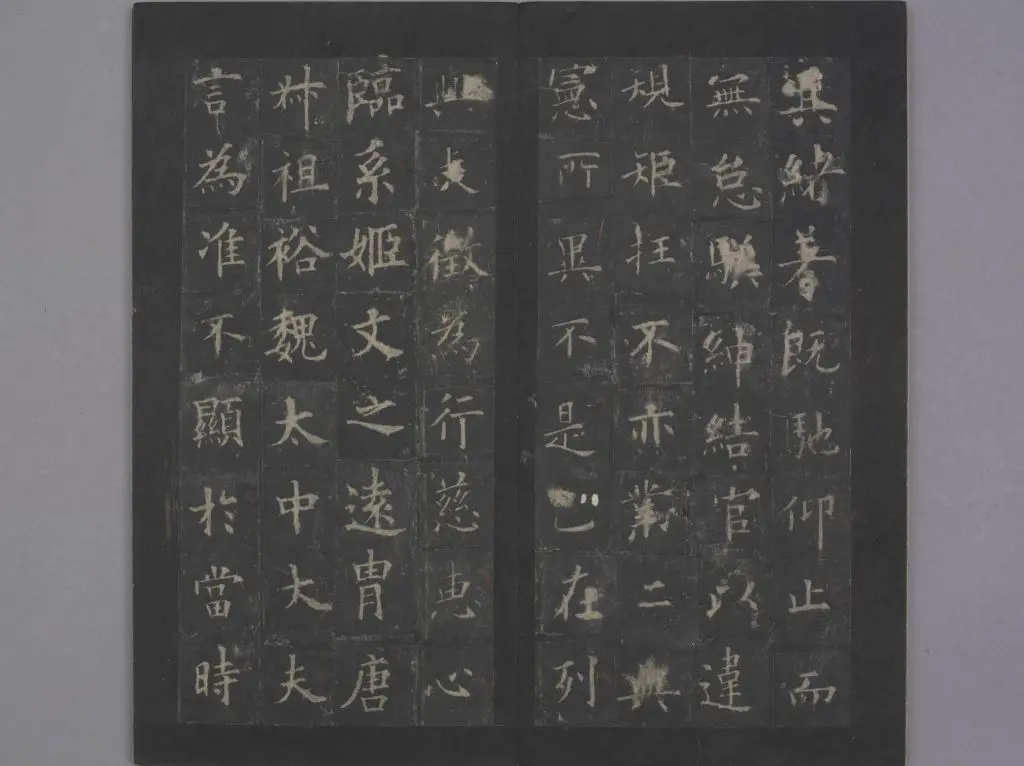 緒著既馳仰止而
無怠紳結官以違
規矩抂不亦二典
憲所異不是已在列
典夫徵為行慈惠心
臨系姬文之遠胄唐
叔祖裕魏太中大夫
言為准不顯於當時